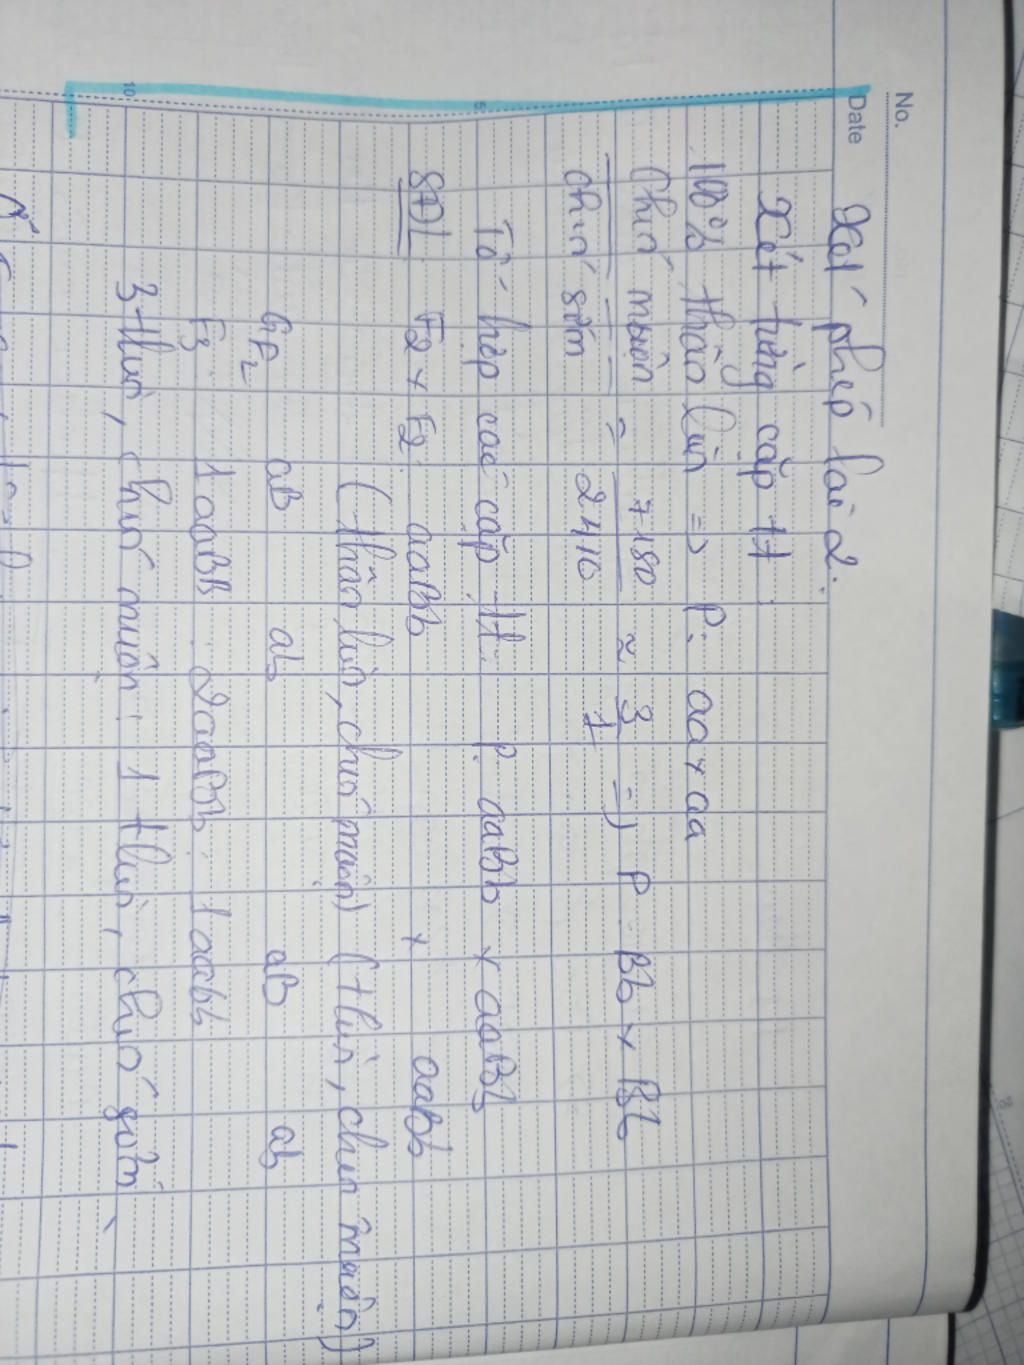 No.
Date
Xét phép lai 2:
Xét từng cặp tt
100% thân lùn => P: aa x aa
Chín muộn = 7180 ≈ 3 => P Bb x Bb
chín sớm 2410 1
Tổ hợp các cặp tt: P. aaBb x aaBb
SĐL F2 x F2. aaBb x aaBb
(thân lùn, chín muộn) (t lùn, chín muộn)
GF2 aB ab aB ab
F3 1 aaBB : 2aaBb : 1 aabb
3 t lùn, chín muộn : 1 t lùn, chín sớm
5
10